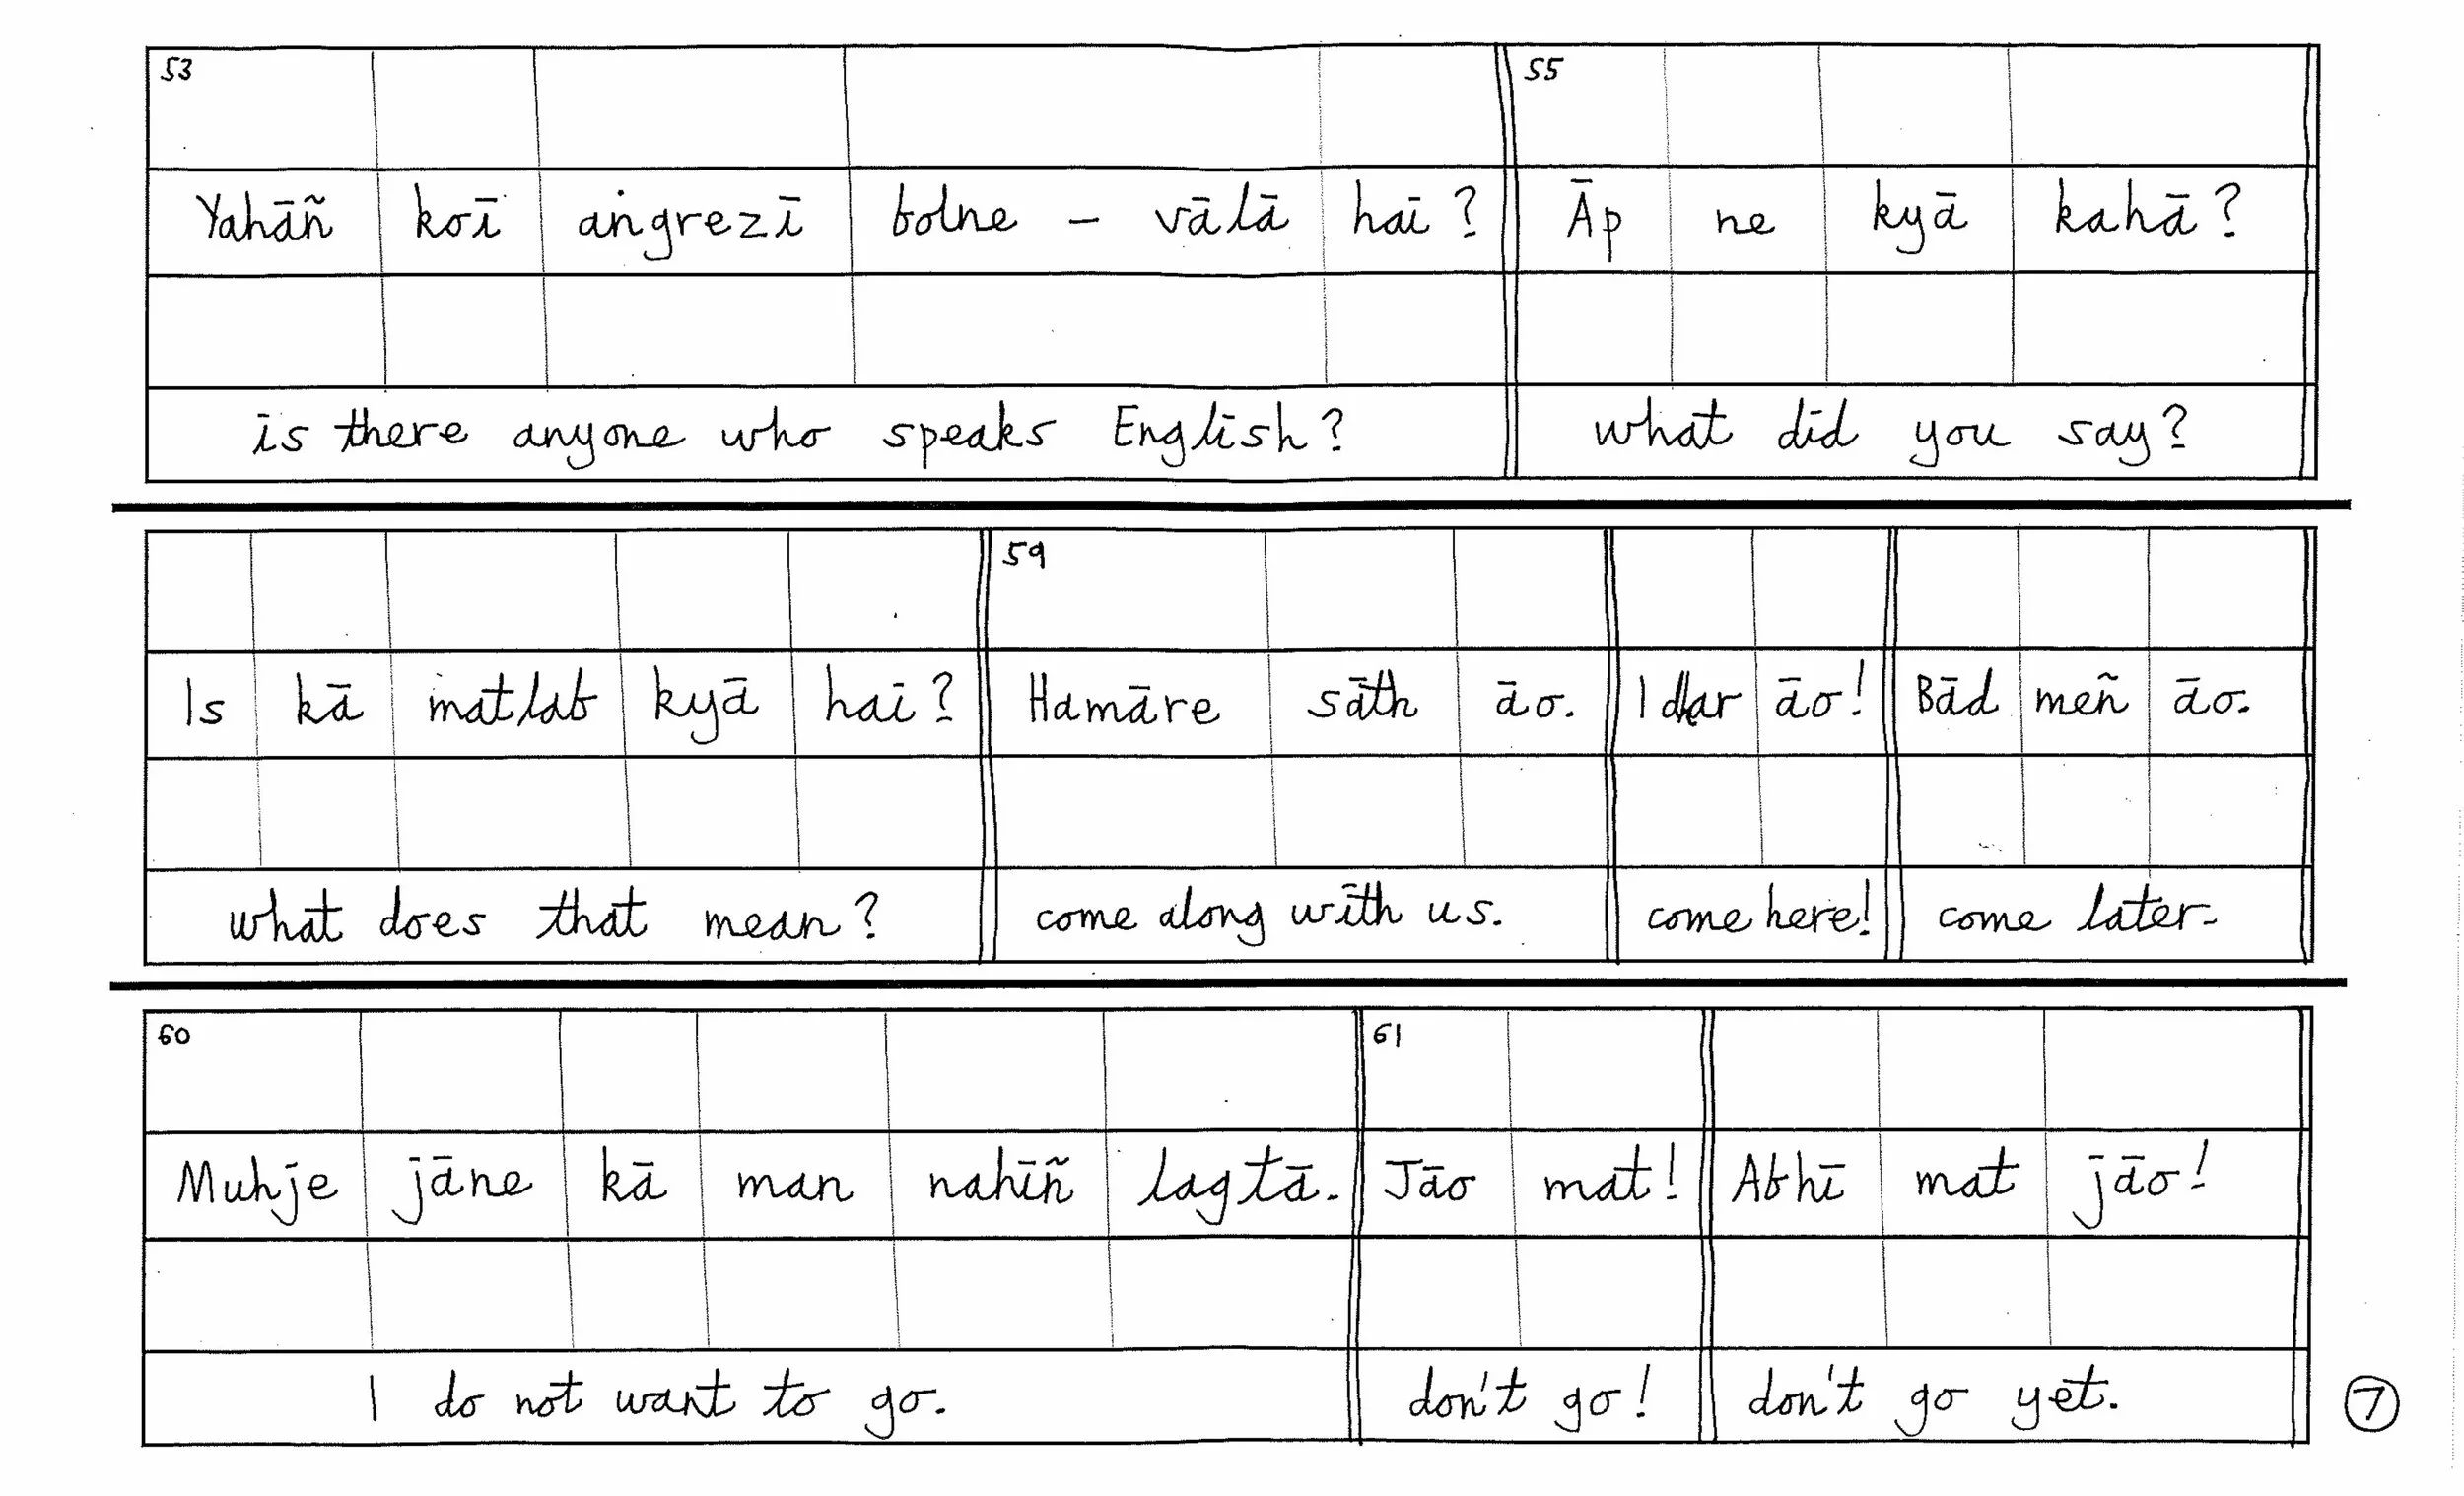 53 55
Yahāñ koī aṅgrezī bolne - vālā hai? Āp ne kyā kahā?
is there anyone who speaks English? what did you say?
59
Is kā matlab kyā hai? Hamāre sāth āo. Idhar āo! Bād meñ āo.
what does that mean? come along with us. come here! come later.
60 61
Muhje jāne kā man nahīñ lagtā. Jāo mat! Abhī mat jāo!
I do not want to go. don't go! don't go yet.
7